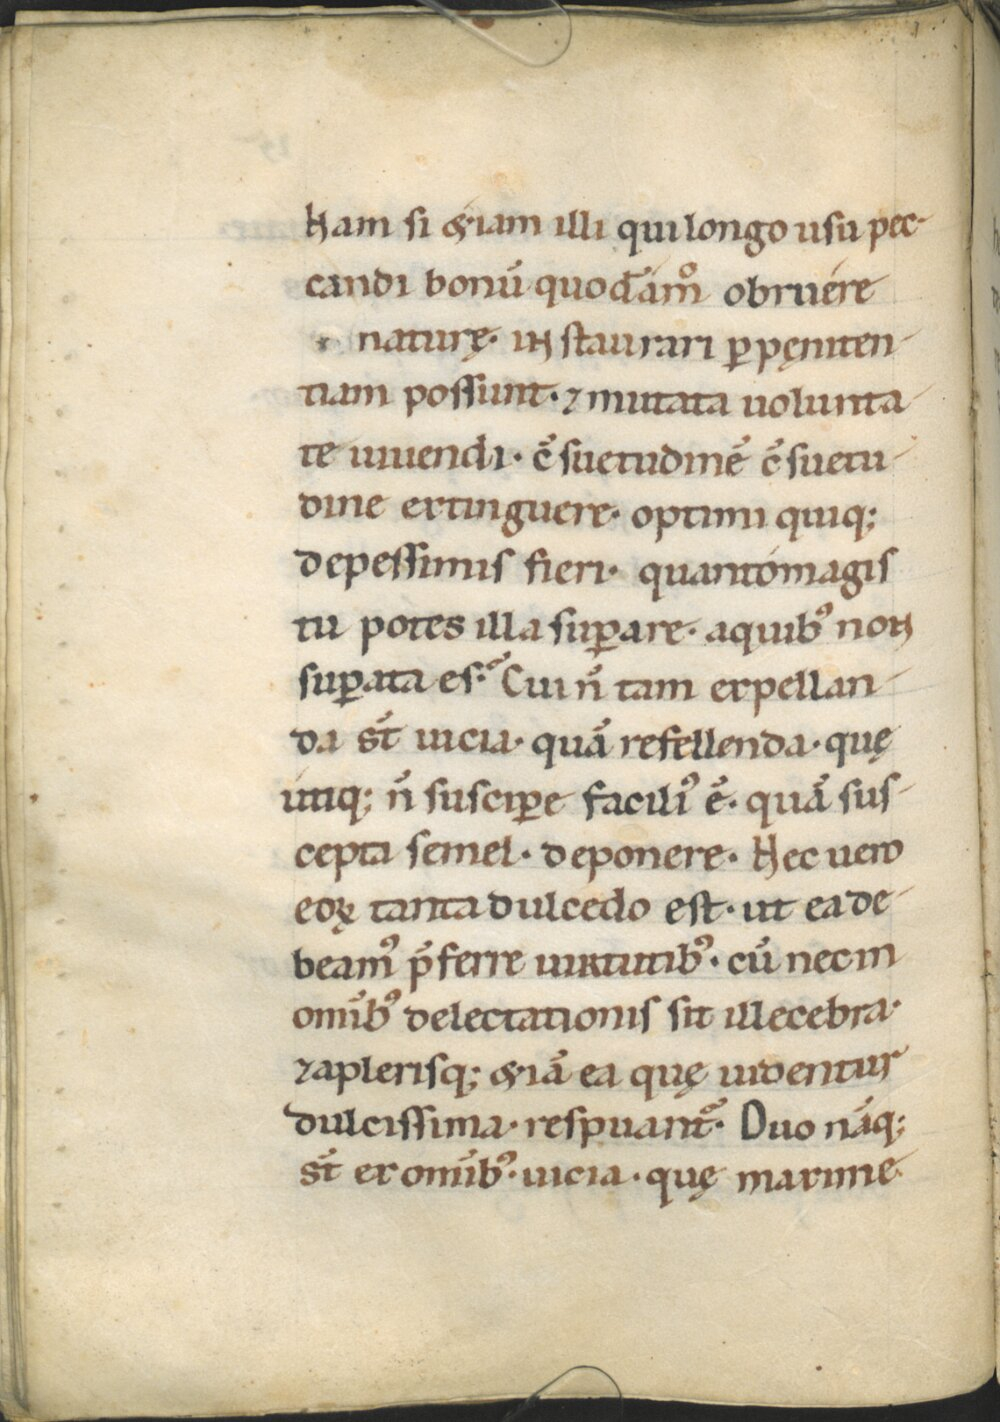 Nam si &iam illi qui longo usu pec-
candi bonū quodāmº obruere
naturę· instaurari ꝑ pęniten-
tiam possunt·⁊ mutata uolunta-
te uiuendi· c̄suetudinē c̄suetu-
dine extinguere· optimi quiq;
de pessimis fieri· quantómagis
tu potes illa suꝑare· a quibꝰ non
suꝑata es·? Cui n̄ tam expellan-
da st̄ uicia· quā refellenda· quę
utiq; n̄ susciꝑe faciliꝰ ē· quā sus-
cepta semel· deponere· Nec uero
eoꝝ tanta dulcedo est· ut ea de-
beamꝰ p̄ferre uirtutibꝰ· cū nec in
omībꝰ delectationis sit illecebra·
⁊ a plerisq; &iā ea quę uidentur
dulcissima· respuant᷑· Duo nāq;
st̄ ex omībꝰ· uicia· quę maxime